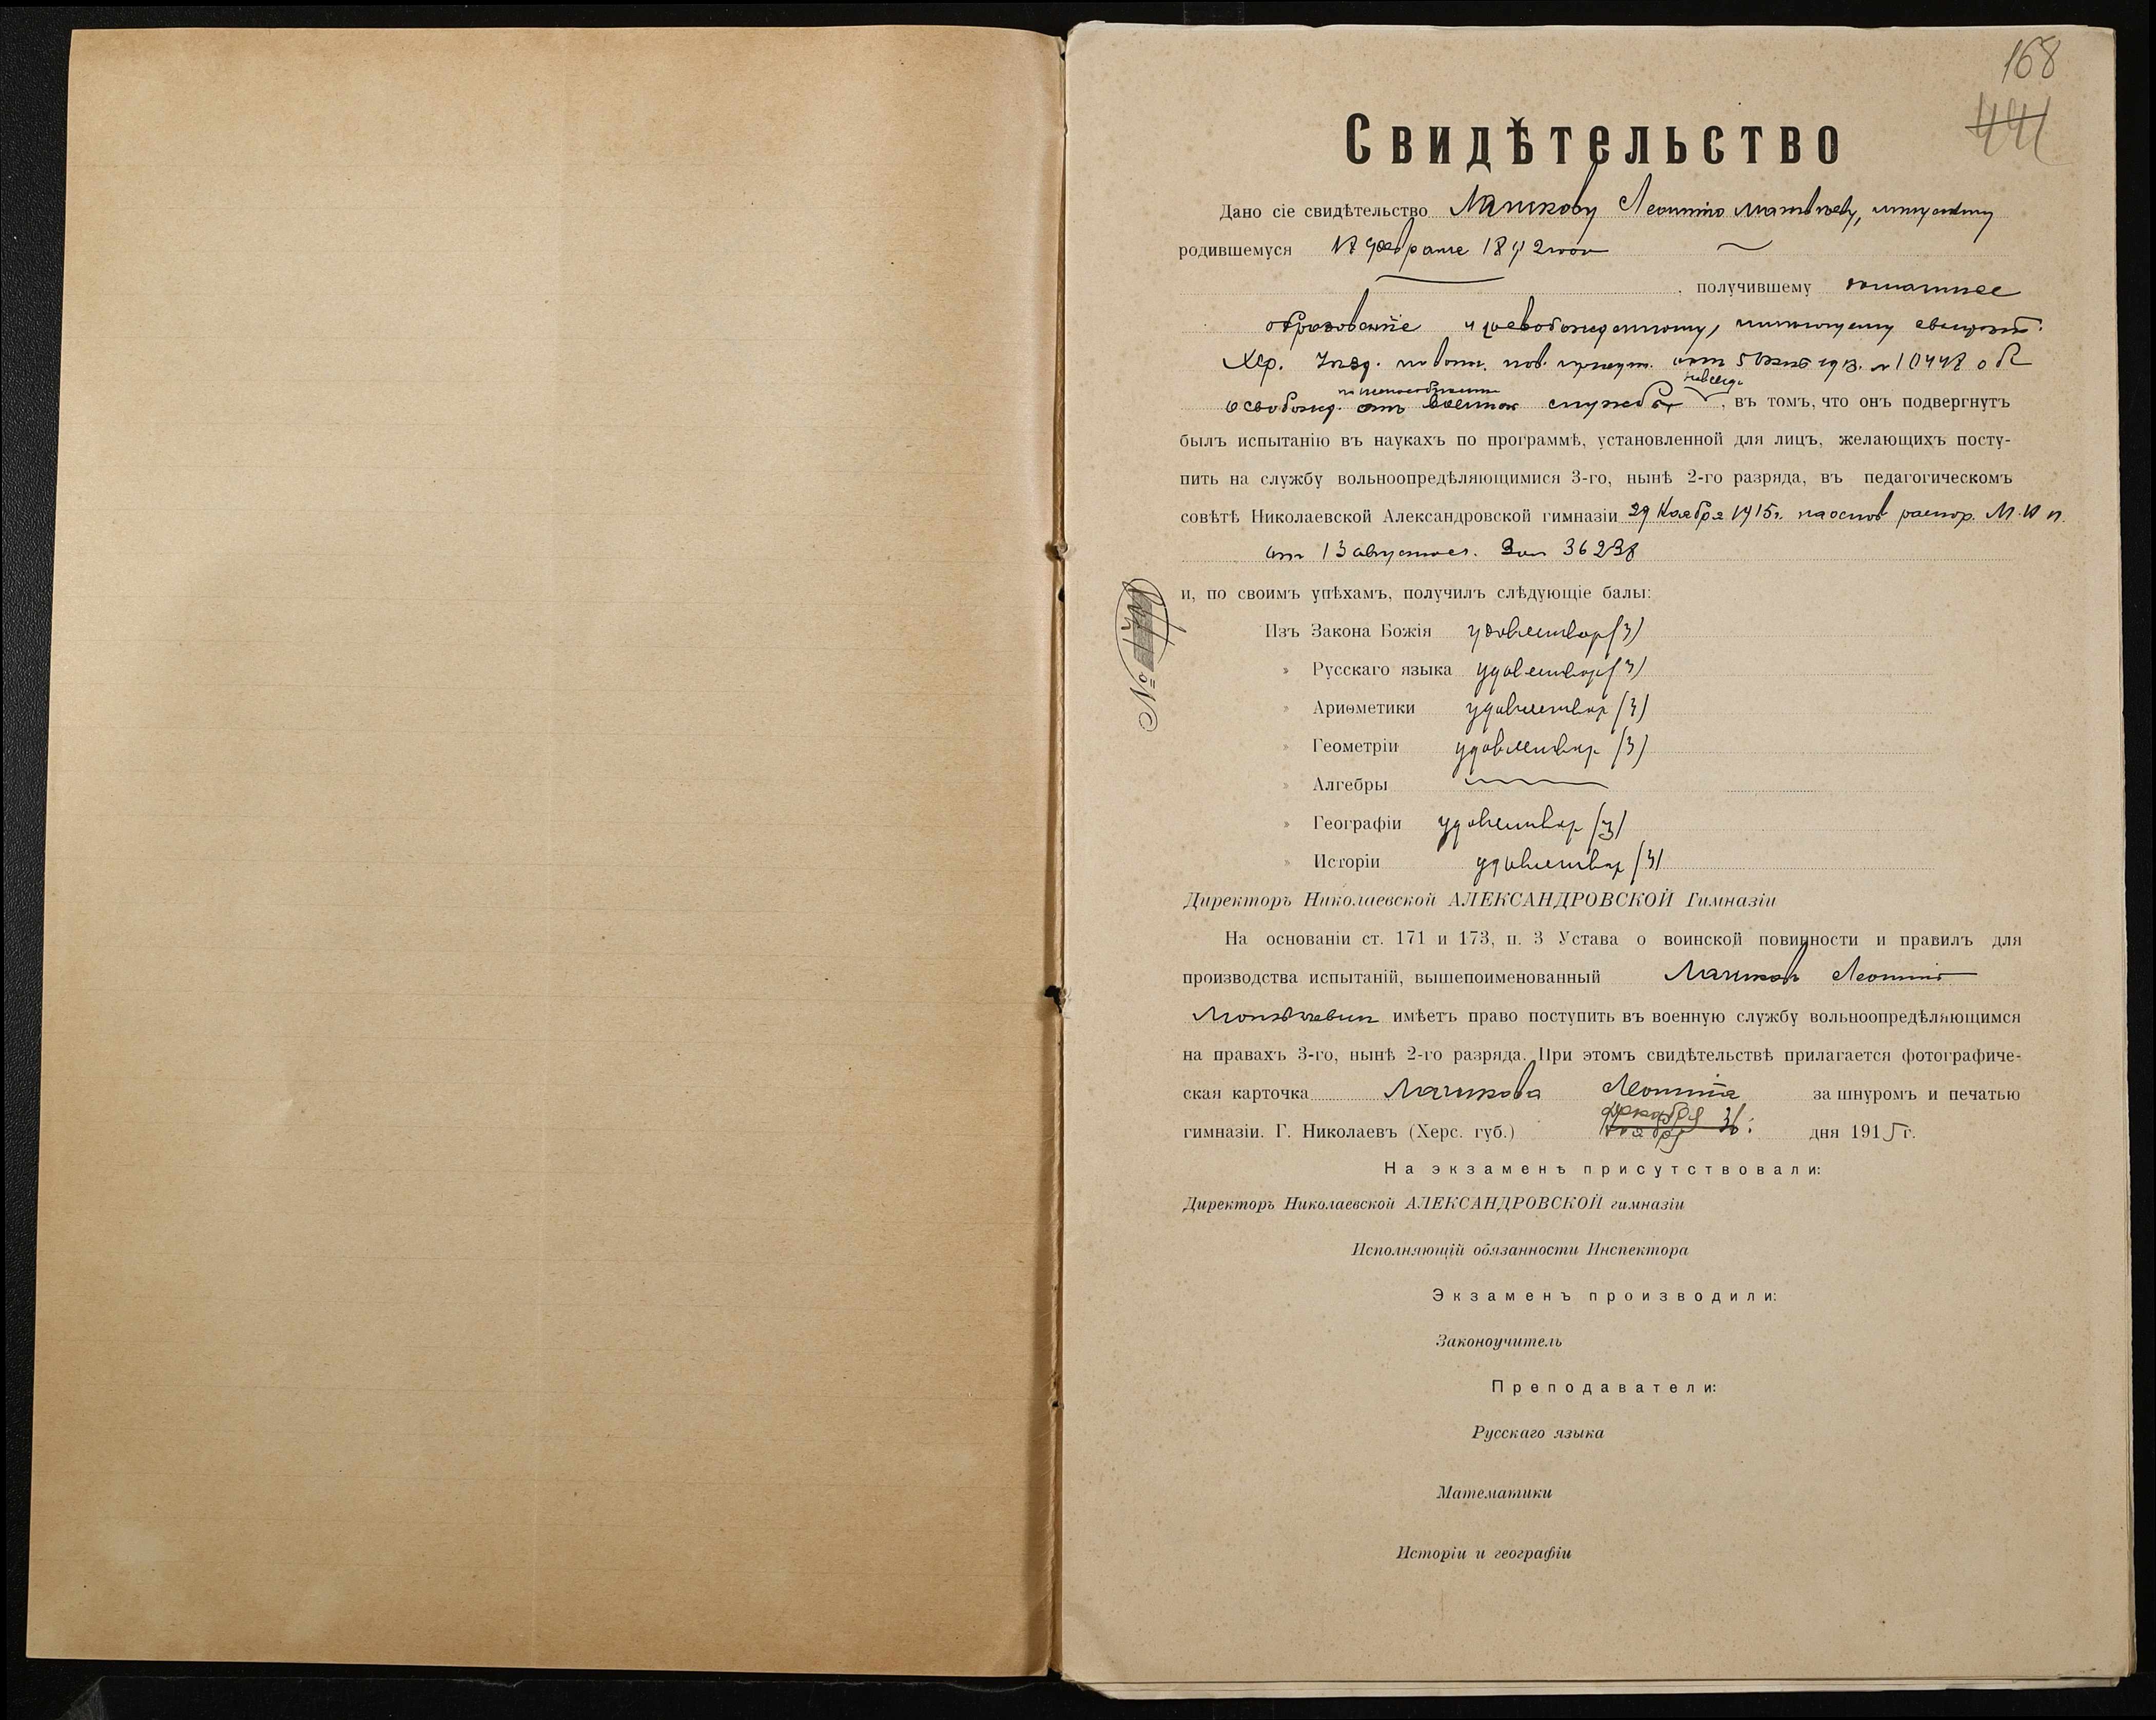 168
441
Свидѣтельство
Дано сіе свидѣтельство Леонтію Матвѣеву, мещанину
родившемуся 17 февраля 1892 года
, получившему домашнее
образованіе и освобожденному,
Хер. Уѣзд. по воин. пов. присут. отъ 5 1913. № 10448 об
по неспособности навсегда
освобожд. отъ военной службы, въ томъ, что онъ подвергнутъ
былъ испытанію въ наукахъ по программѣ, установленной для лицъ, желающихъ посту-
пить на службу вольноопредѣляющимися 3-го, нынѣ 2-го разряда, въ педагогическомъ
совѣтѣ Николаевской Александровской гимназіи 29 Ноября 1915г. на основ распор. М. Н. П.
отъ 13 августа с.г. за № 36238
и, по своимъ успѣхамъ, получилъ слѣдующіе балы:
№
Изъ Закона Божія удовлетвор (3)
» Русскаго языка удовлетвор (3)
» Ариѳметики удовлетвор (3)
» Геометріи удовлетвор (3)
» Алгебры
» Географіи удовлетвор (3)
» Исторіи удовлетвор (3)
Директоръ Николаевской АЛЕКСАНДРОВСКОЙ Гимназіи
На основаніи ст. 171 и 173, п. 3 Устава о воинской повинности и правилъ для
производства испытаній, вышепоименованный Леонтій
Матвѣевич имѣетъ право поступить въ военную службу вольноопредѣляющимся
на правахъ 3-го, нынѣ 2-го разряда. При этомъ свидѣтельствѣ прилагается фотографиче-
ская карточка Леонтія за шнуромъ и печатью
декабря
гимназіи. Г. Николаевъ (Херс. губ.) ноября дня 1915 г.
На экзаменѣ присутствовали:
Директоръ Николаевской АЛЕКСАНДРОВСКОЙ гимназіи
Исполняющій обязанности Инспектора
Экзаменъ производили:
Законоучитель
Преподаватели:
Русскаго языка
Математики
Исторіи и географіи